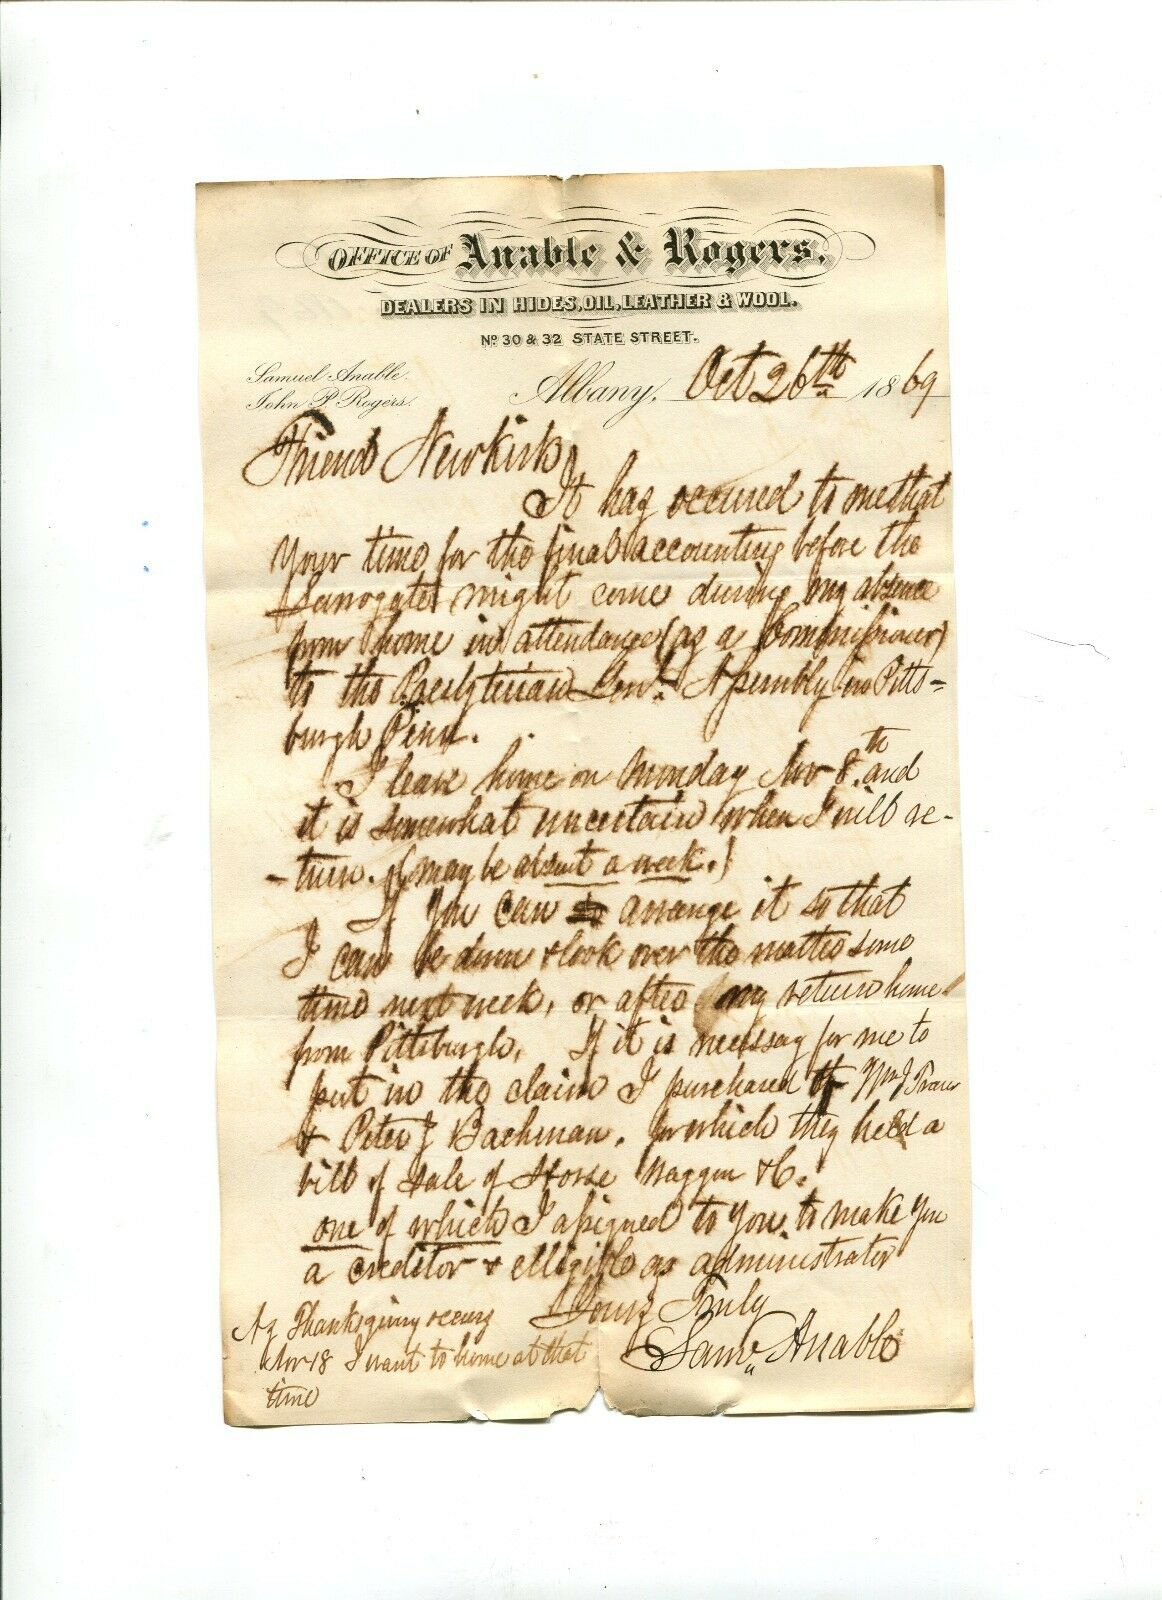 OFFICE OF Anable & Rogers.
DEALERS IN HIDES, OIL, LEATHER & WOOL.
No 30 & 32 STATE STREET.
Samuel Anable.
John P Rogers.
Albany, Oct 26th 1869
Friend Newkirk
It has occured to me that
your time for the final accounting before the
Surrogate might come during my absence
from home in attendance (as a Commissioner)
to the Presbyterian Genl Assembly in Pitts=
burgh Penn.
I leave home on Monday Nov 8th and
it is somewhat uncertain when I will re-
-turn. (I may be absent a week.)
If you can arrange it so that
I can be down & look over the matter some
time next week, or after my return home
from Pittsburgh. If it is necessay for me to
put in the claim I purchased of Wm J
& Peter J Bachman. for which they held a
bill of sale of Horse Waggon &C.
one of which I assigned to you to make you
a creditor & elligible as administrator
Yours Truly
Saml Anable
As Thanksgiving occurs
Nov 18 I want to home at that
time